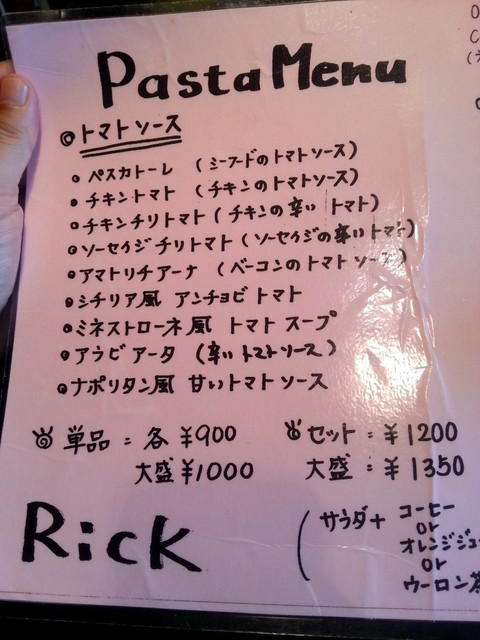 Pasta Menu
◎トマトソース
ペスカトーレ (シーフードのトマトソース)
チキントマト (チキンのトマトソース)
チキンチリトマト (チキンの辛いトマト)
ソーセイジチリトマト (ソーセイジの辛いトマト)
アマトリチアーナ (ベーコンのトマトソース)
シチリア風 アンチョビトマト
ミネストローネ風 トマトスープ
アラビアータ (辛いトマトソース)
ナポリタン風 甘いトマトソース
単品 = 各 ¥900
大盛 ¥1000
セット = ¥1200
大盛 = ¥1350
Rick
(サラダ+ コーヒー
or
オレンジジュー
or
ウーロン茶